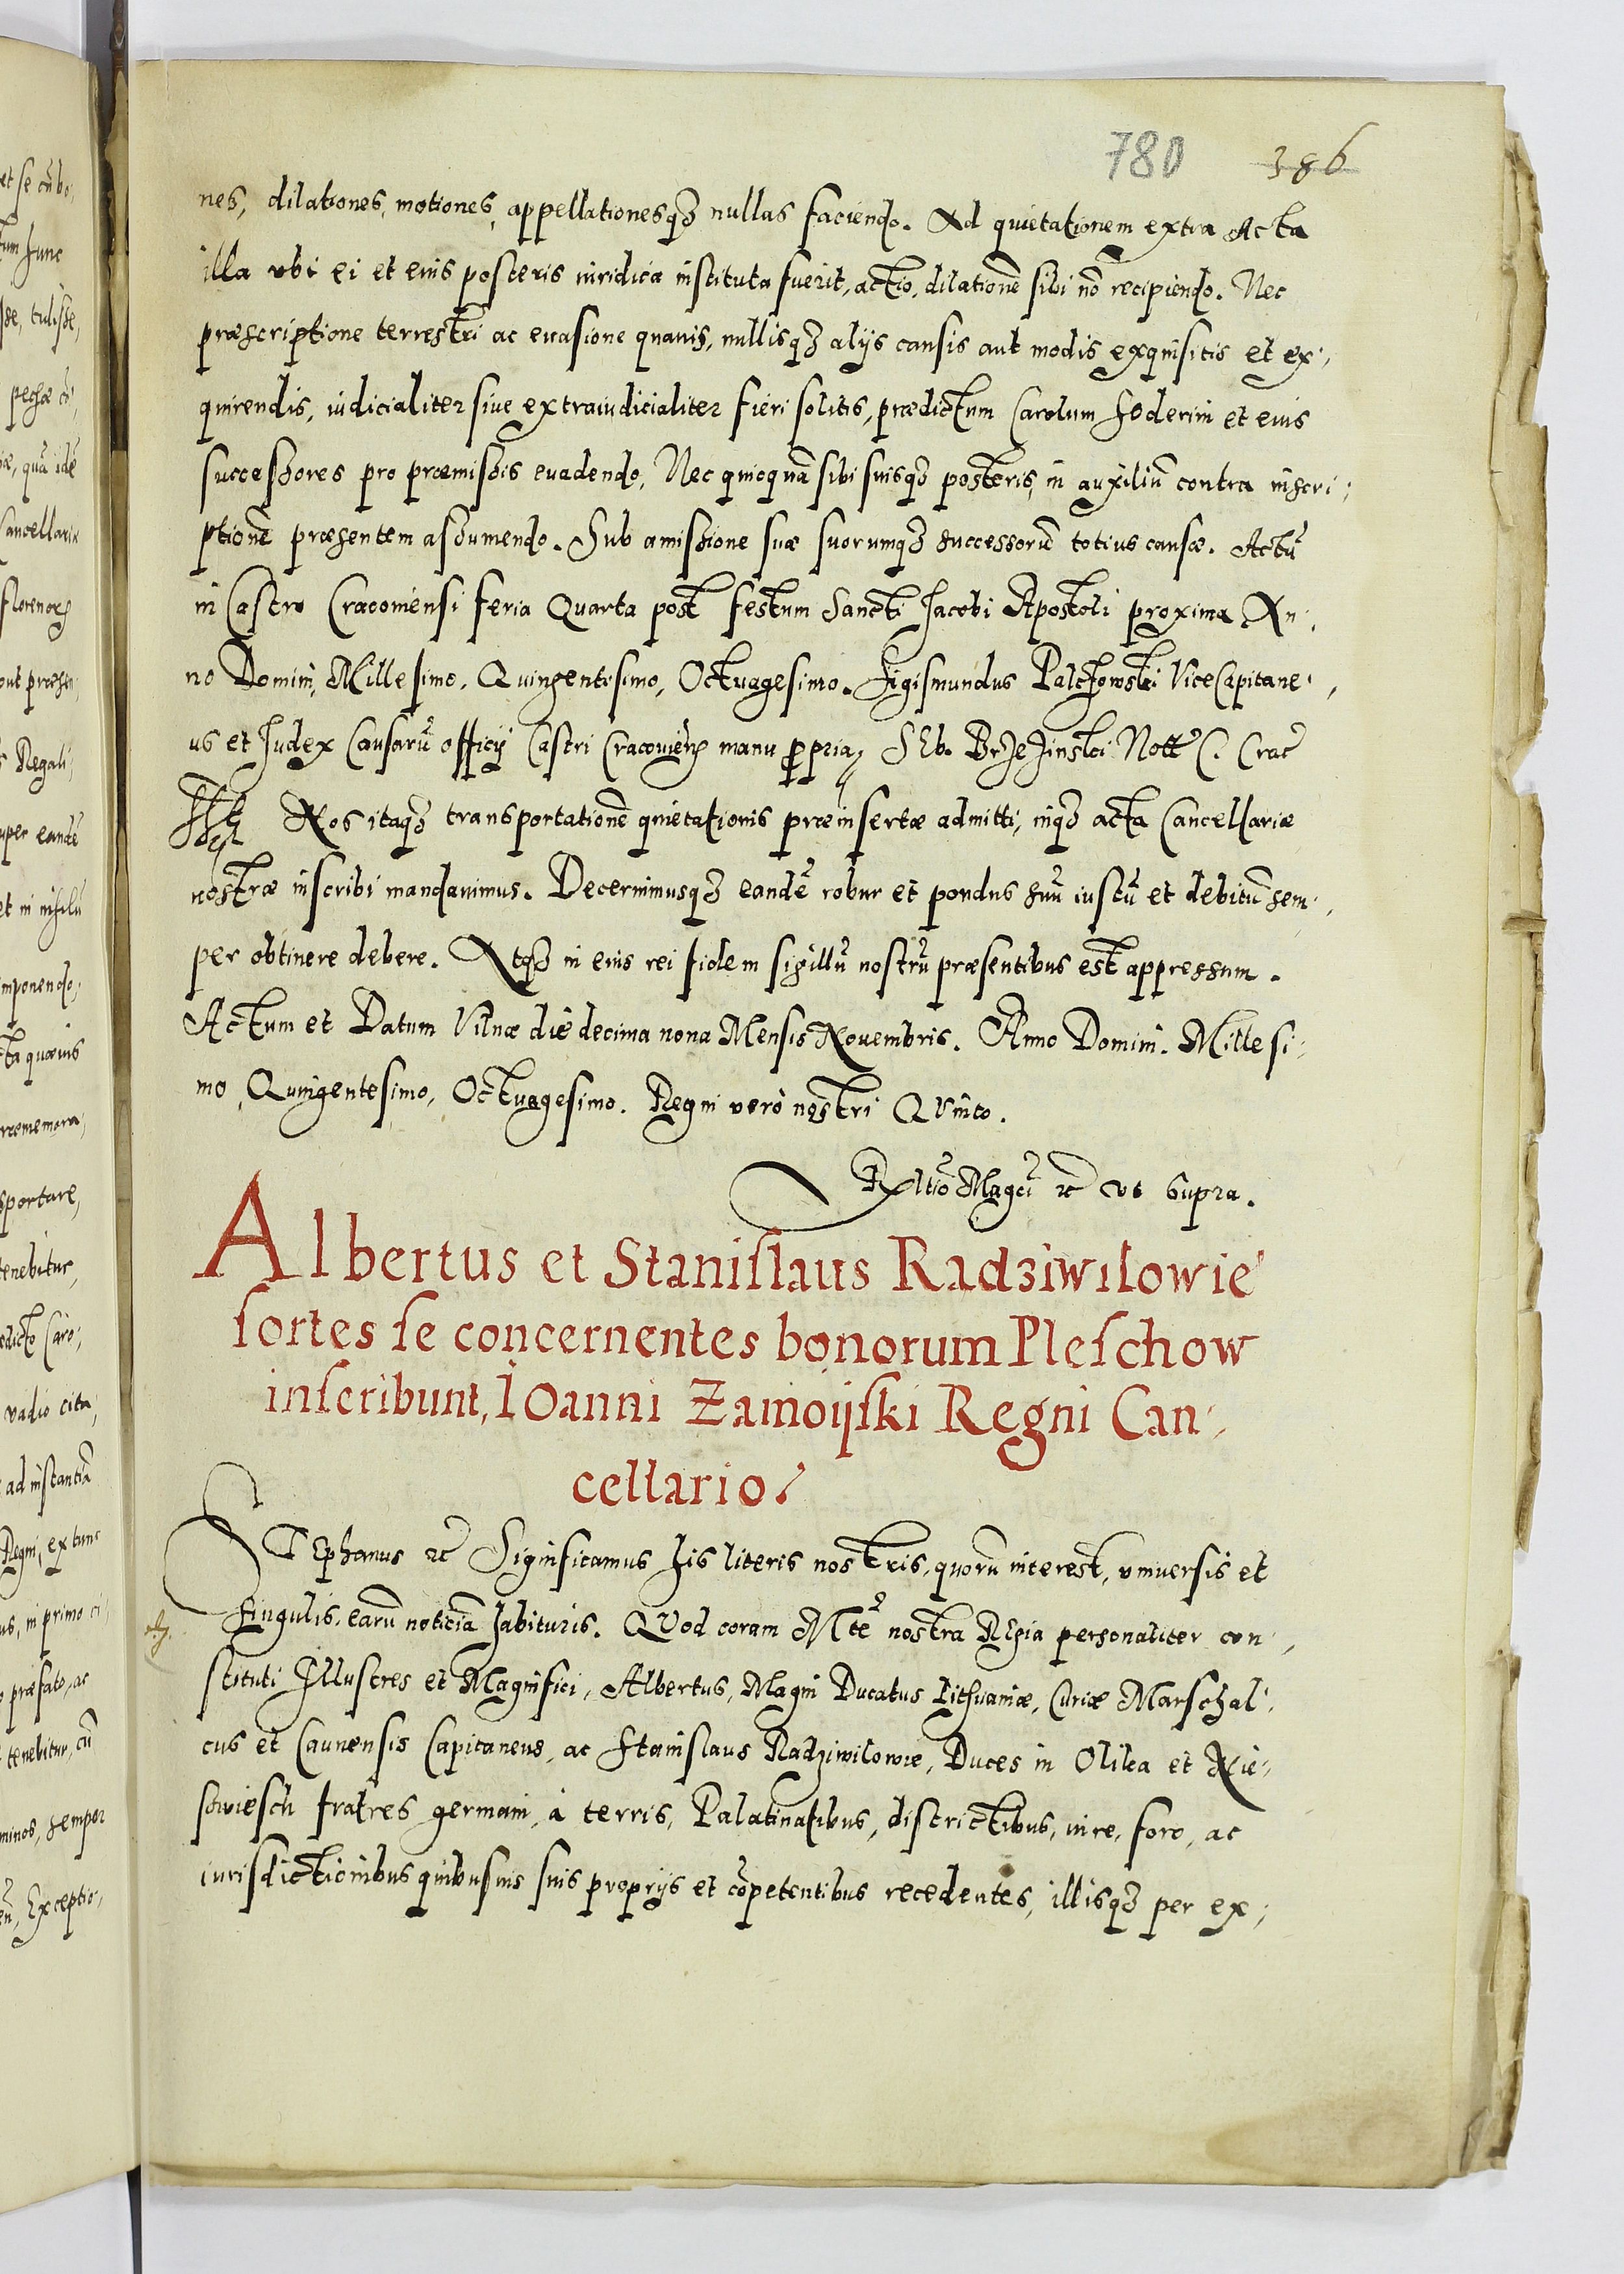 780 386
nes, dilationes, motiones, appellationesqȝ nullas faciendo. Ad quietationem extra Acta
illa vbi ei et eius posteris iuridica instituta fuerit, actio, dilationē sibi nō recipiendo. Nec
præscriptione terrestri ac euasione quauis, nullisqȝ alijs causis aut modis exquisitis et ex,
quirendis, iudicialiter siue extraiudicialiter fieri solitis, prædictum Carolum Soderini et eius
successores pro præmissis euadendo, Nec quicquā sibi suisqȝ posteris, in auxiliū contra inscri,
ptionē præsentem assumendo. Sub amissione suæ suorumqȝ successorū totius causæ. Actū
in Castro Cracouiensi feria Quarta post festum Sancti Jacobi Apostoli proxima An,
no Domini, Millesimo, Quingentesimo, Octuagesimo. Sigismundus Palczowski ViceCapitane,
us et Judex Causarū officij Castri Cracouień manu ppria, Seb. Brzezinski Nott C. Crac
Nos itaqȝ transportationē quietationis præinsertæ admitti, inqȝ acta Cancellariæ
nostræ inscribi mandauimus. Decernimusqȝ eandē robur et pondus suū iustū et debitū sem,
per obtinere debere. Atqȝ in eius rei fidem sigillū nostrū præsentibus est appressum.
Actum et Datum Vilnæ die decima nona Mensis Nouembris. Anno Domini. Millesi,
mo, Quingentesimo, Octuagesimo. Regni vero nostri QVinto.
Rltio Magci rc vt supra.
Albertus et Stanislaus Radziwilowie
sortes se concernentes bonorum Pleschow
inscribunt, IOanni Zamoijski Regni Can,
cellario.
STEphanus rc Significamus his literis nostris, quorū interest, vniuersis et
singulis, earū noticiā habituris. QVod coram Mte nostra Regia personaliter con,
stituti Illustres et Magnifici, Albertus, Magni Ducatus Lithuaniæ, Curiæ Marschal,
cus et Caunensis Capitaneus, ac Stanislaus Radziwilowie, Duces in Olika et Nie,
swiesch fratres germani, à terris, Palatinatibus, districtibus, iure, foro, ac
iurisdictionibus quibusuis suis proprijs et cōpetentibus recedentes, illisqȝ per ex,